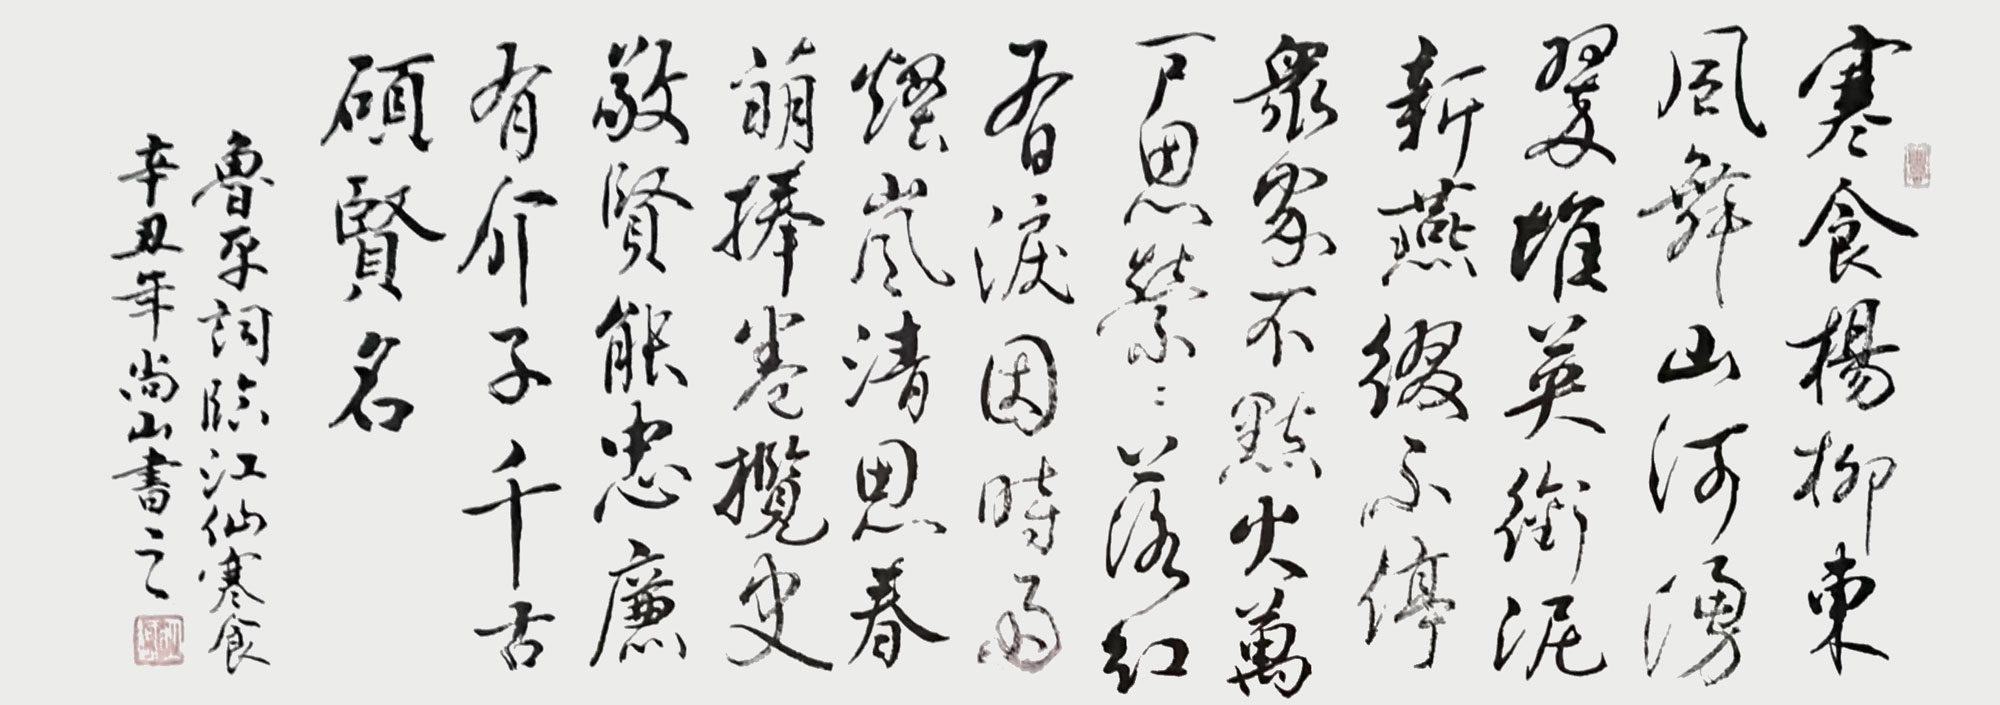 寒食楊柳東
風舞山河湧
翠堆英銜泥
新燕綴不停
衆家不點火萬
戶思縈〻落紅
有淚因時雨
嵐清思春
萌捧卷攬史
敬賢能忠廉
有介子千古
碩賢名
魯平詞臨江仙寒食
辛丑年尚山書之